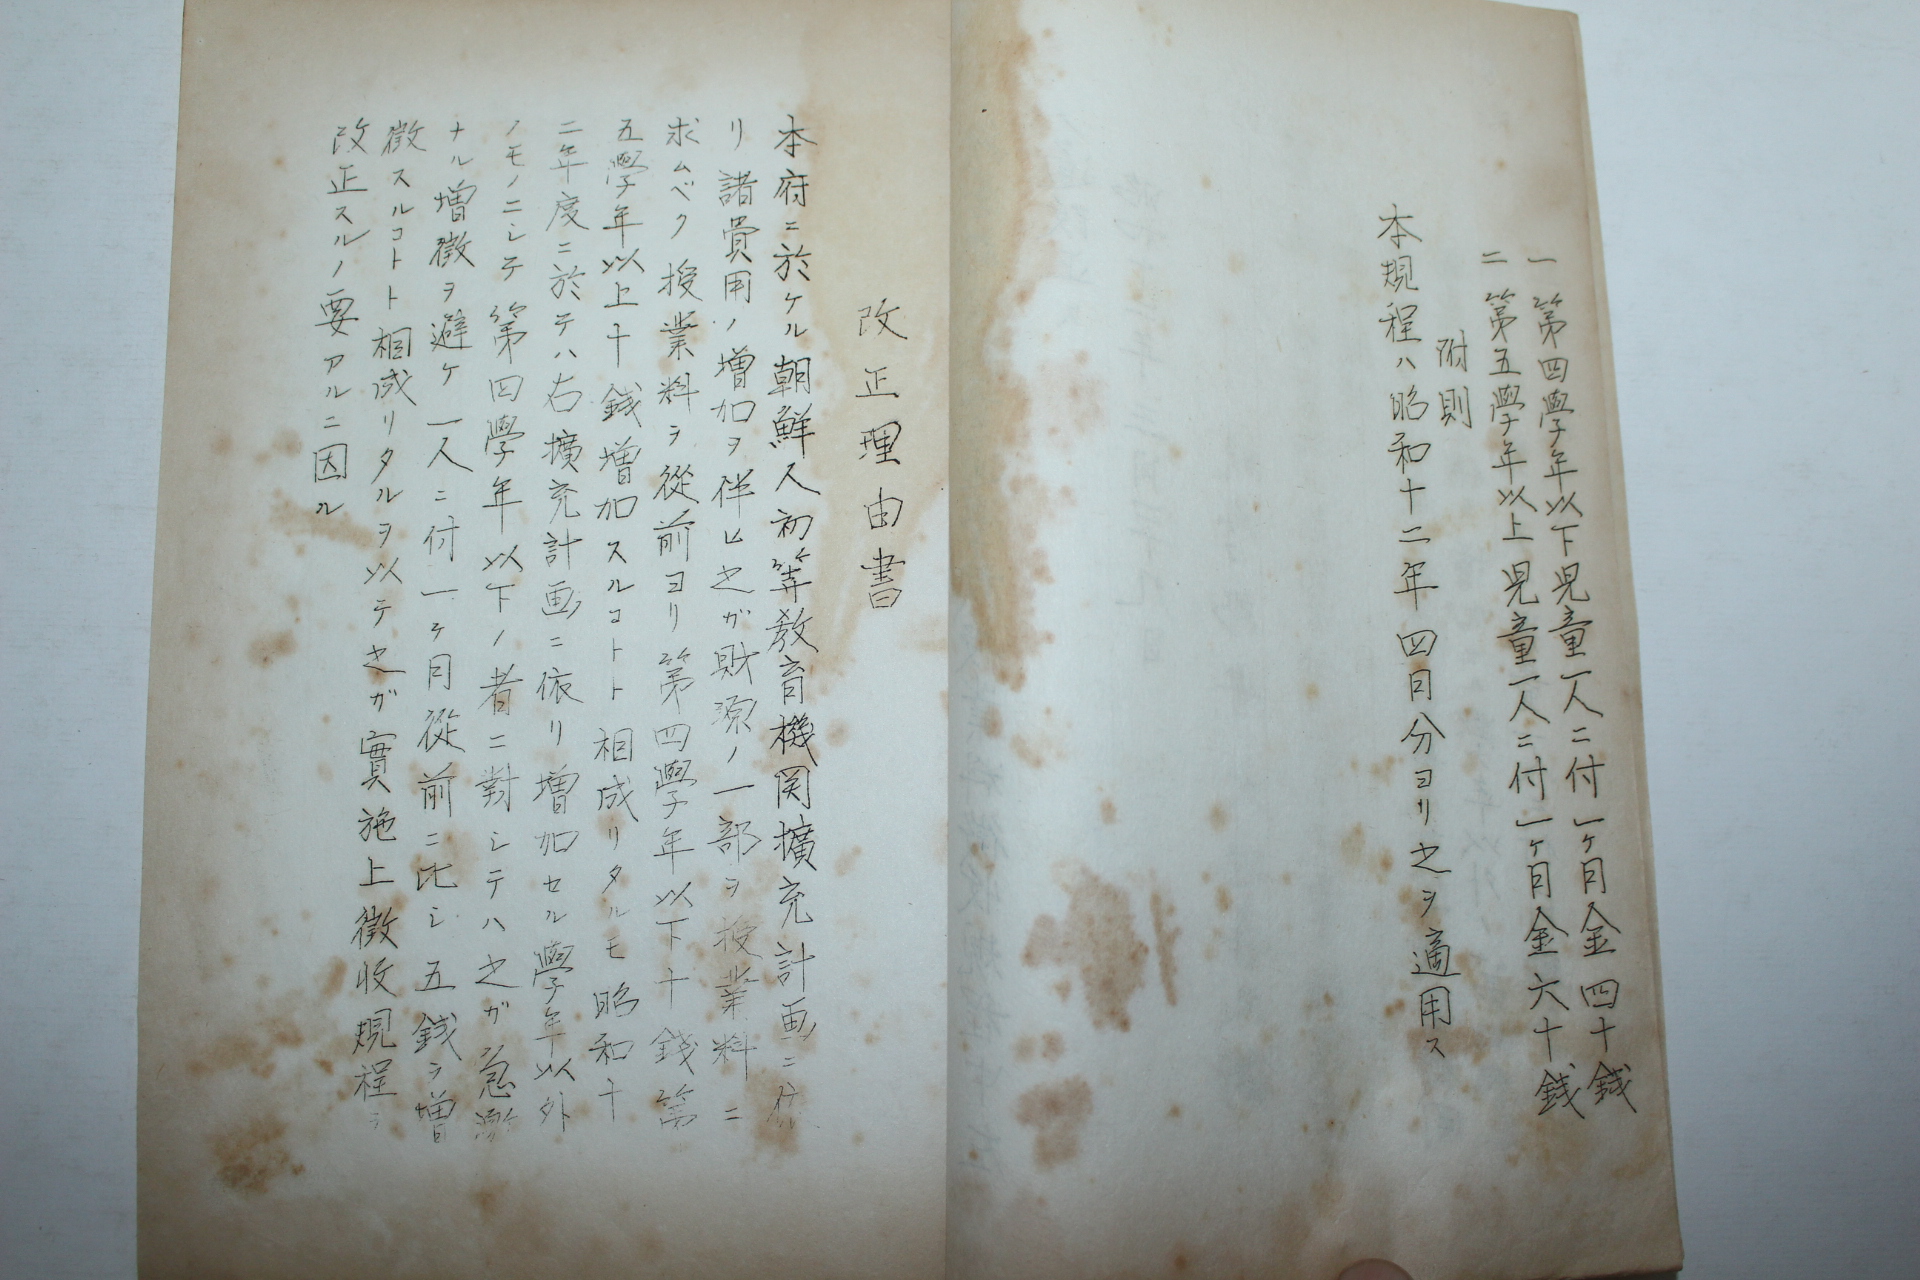 一 第四學年以下児童一人ニ付一ヶ月金四十銭
二 第五學年以上児童一人ニ付一ヶ月金六十銭
附則
本規程ハ昭和十二年四月分ヨリ之ヲ適用ス
改正理由書
本府ニ於ケル朝鮮人初等教育機関擴充計画ニ依
リ諸費用ノ増加ヲ伴ヒ之ガ財源ノ一部ヲ授業料ニ
求ムベク授業料ヲ從前ヨリ第四學年以下十銭第
五學年以上十銭増加スルコトト相成リタルモ昭和十
二年度ニ於テハ右擴充計画ニ依リ増加セル學年以外
ノモノニシテ第四學年以下ノ者ニ對シテハ之ガ急激
ナル増徴ヲ避ケ一人ニ付一ヶ月從前ニ比シ五銭ヲ増
徴スルコトト相成リタルヲ以テ之ガ實施上徴収規程ヲ
改正スルノ要アルニ因ル